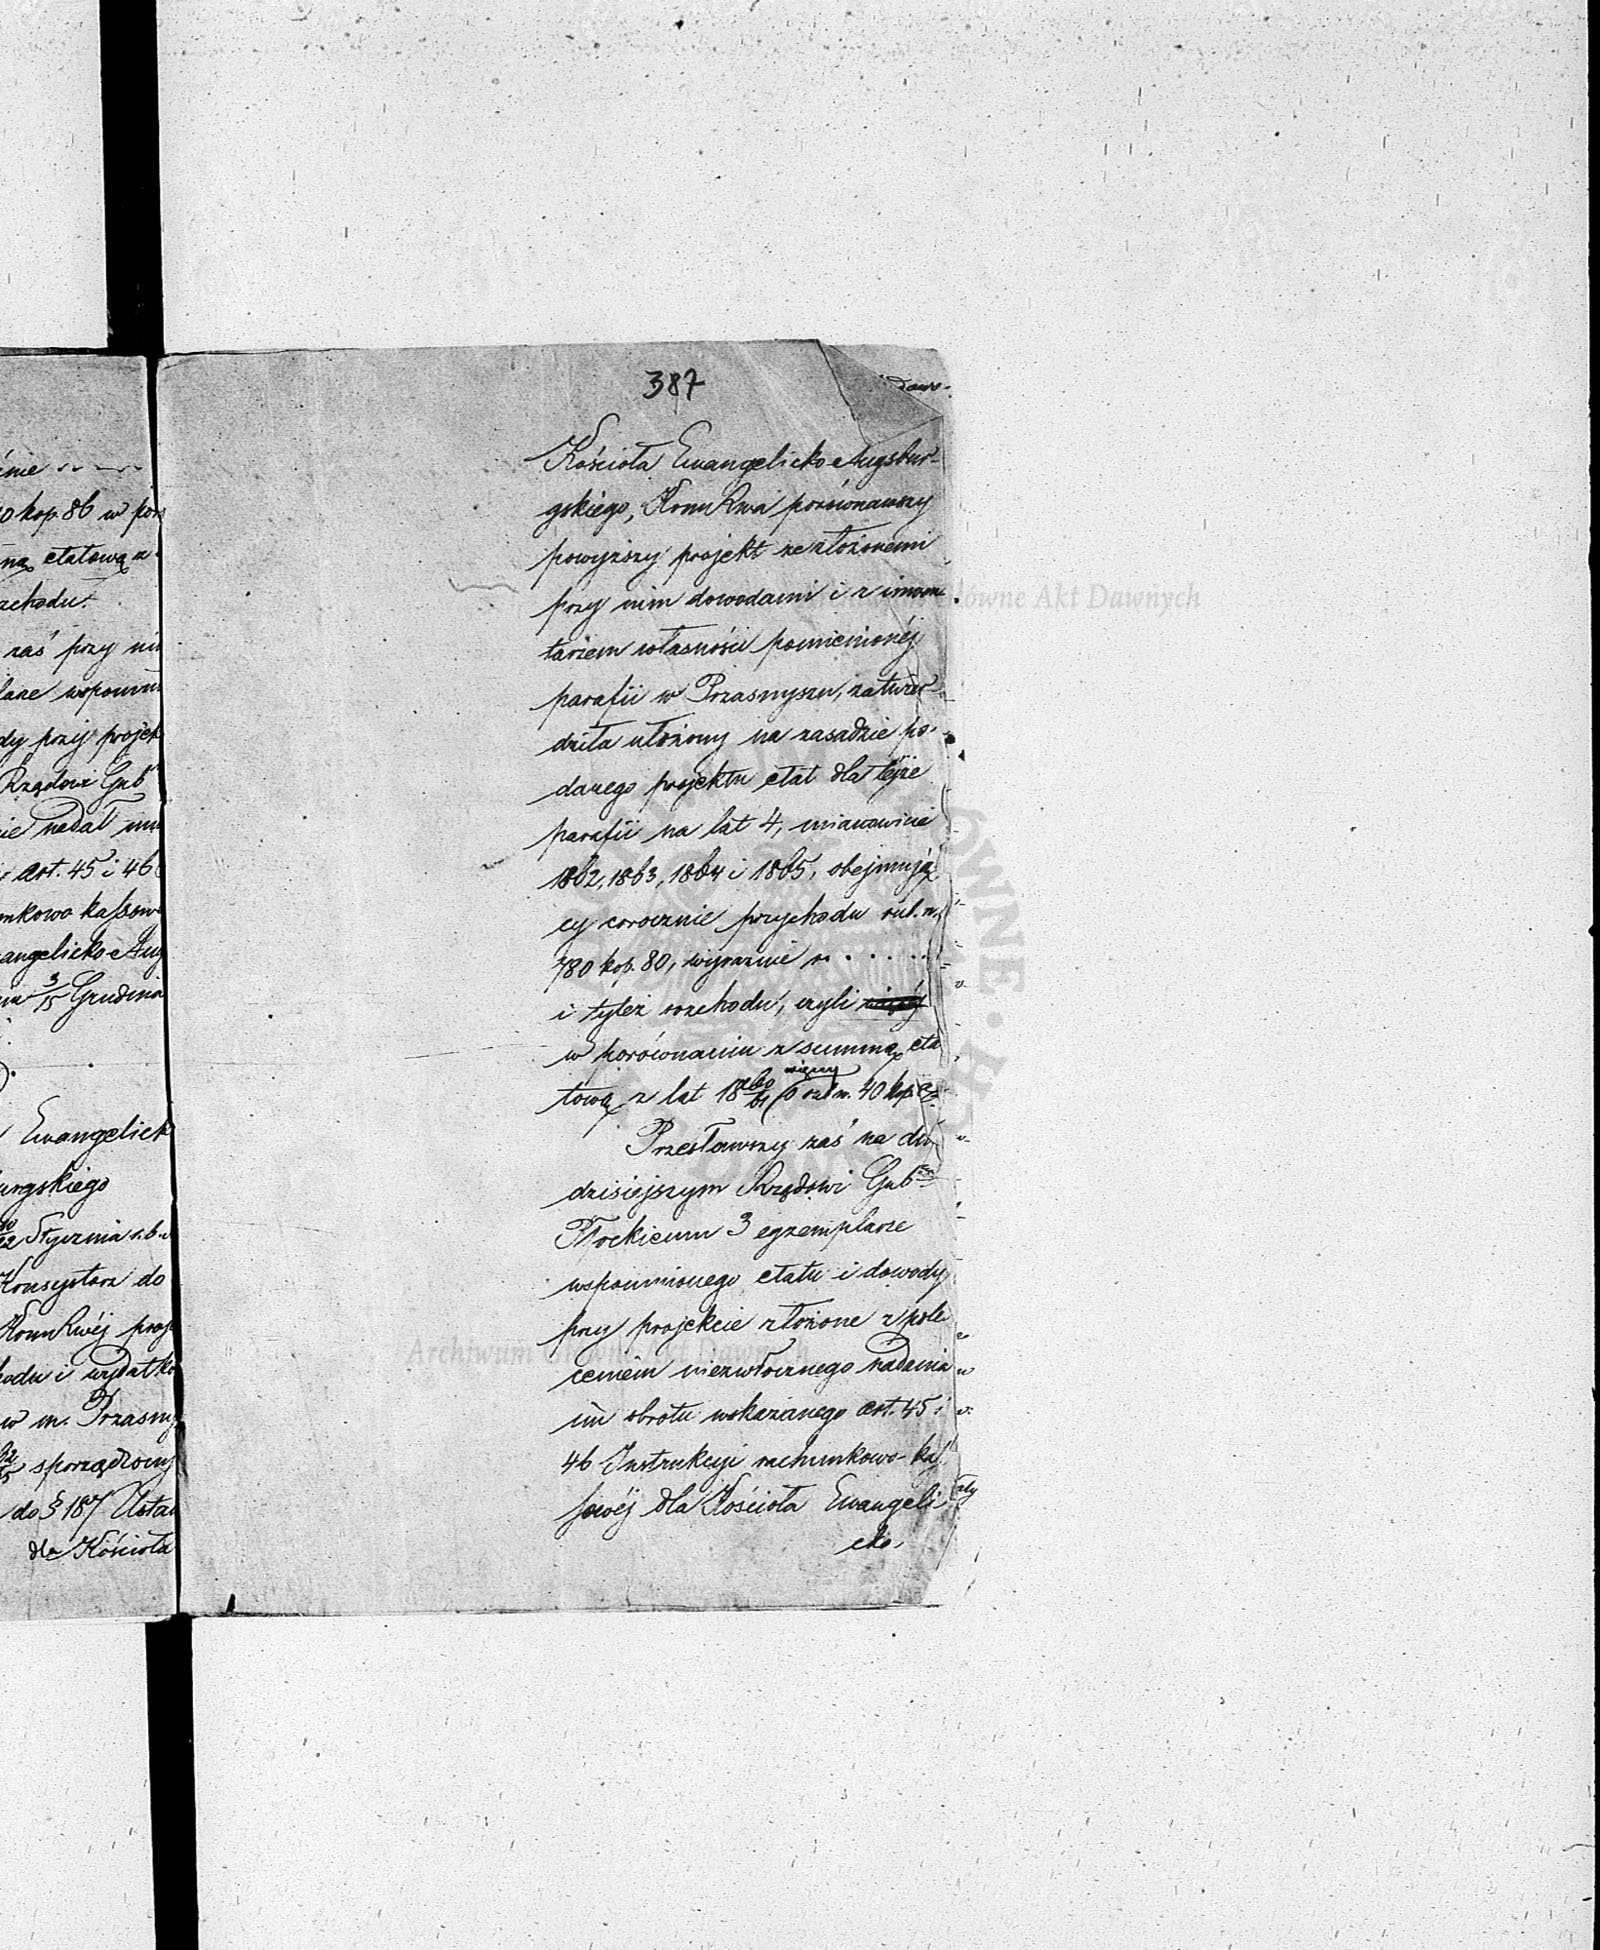 śnie
0 kop. 86 w por
ną etatową z
zchodu.
zaś przy ni
łane wspomn
dy przy projek
Rządowi Gub
ie nadał im
art. 45 i 46
nkowo kassow
angelicko-Aug
3/15 Grudnia
Ewangelick
urgskiego
10/22 Stycznia r. b.
Konsystorz do
Kom Rwéj proj
hodu i wydatkó
w m. Przasny
62/65 sporządzony
do § 187 Ustaw
dla Kościoła
387
Kościoła Ewangelicko-Augsbur-
gskiego, Kom Rwa porównawszy
powyższy projekt ze złożonemi
przy nim dowodami i z inwen-
tarzem własności pomienionéj
parafii w Przasnyszu, zatwier-
dziła ułożony na zasadzie po-
danego projektu etat dla téjże
parafii na lat 4, mianowicie
1862, 1863, 1864 i 1865, obejmują-
cy corocznie przychodu rub. sr.
780 kop. 80, wyraźnie r. . . . . .
i tyleż rozchodu, czyli
w porównaniu z summą eta
tową z lat 1860/61 więcej o rub. sr. 40 kop.
Przesławszy zaś na dniu
dzisiejszym Rządowi Gub
Płockiemu 3 egzemplarze
wspomnionego etatu i dowody
przy projekcie złożone z pole
ceniem niezwłocznego nadania
im obrotu wskazanego art. 45 i
46 Instrukcyi rachunkowo-kas
sowéj dla Kościoła Ewangeli
cko-
Archiwum Główne Akt Dawnych
Archiwum Główne Akt Dawnych